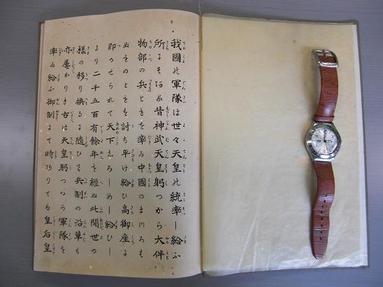 我國の軍隊は世々天皇の統率し給ふ
所にそある昔神武天皇躬つから大伴
物部の兵ともを率ゐ中國のまつろは
ぬものともを討ち平け給ひ高御座に
即かせられて天下しろしめし給ひし
より二千五百有餘年を經ぬ此間世の
樣の移り換るに隨ひて兵制の沿革も
亦屢なりき古は天皇躬つから軍隊を
率ゐ給ふ御制にて時ありては皇后皇